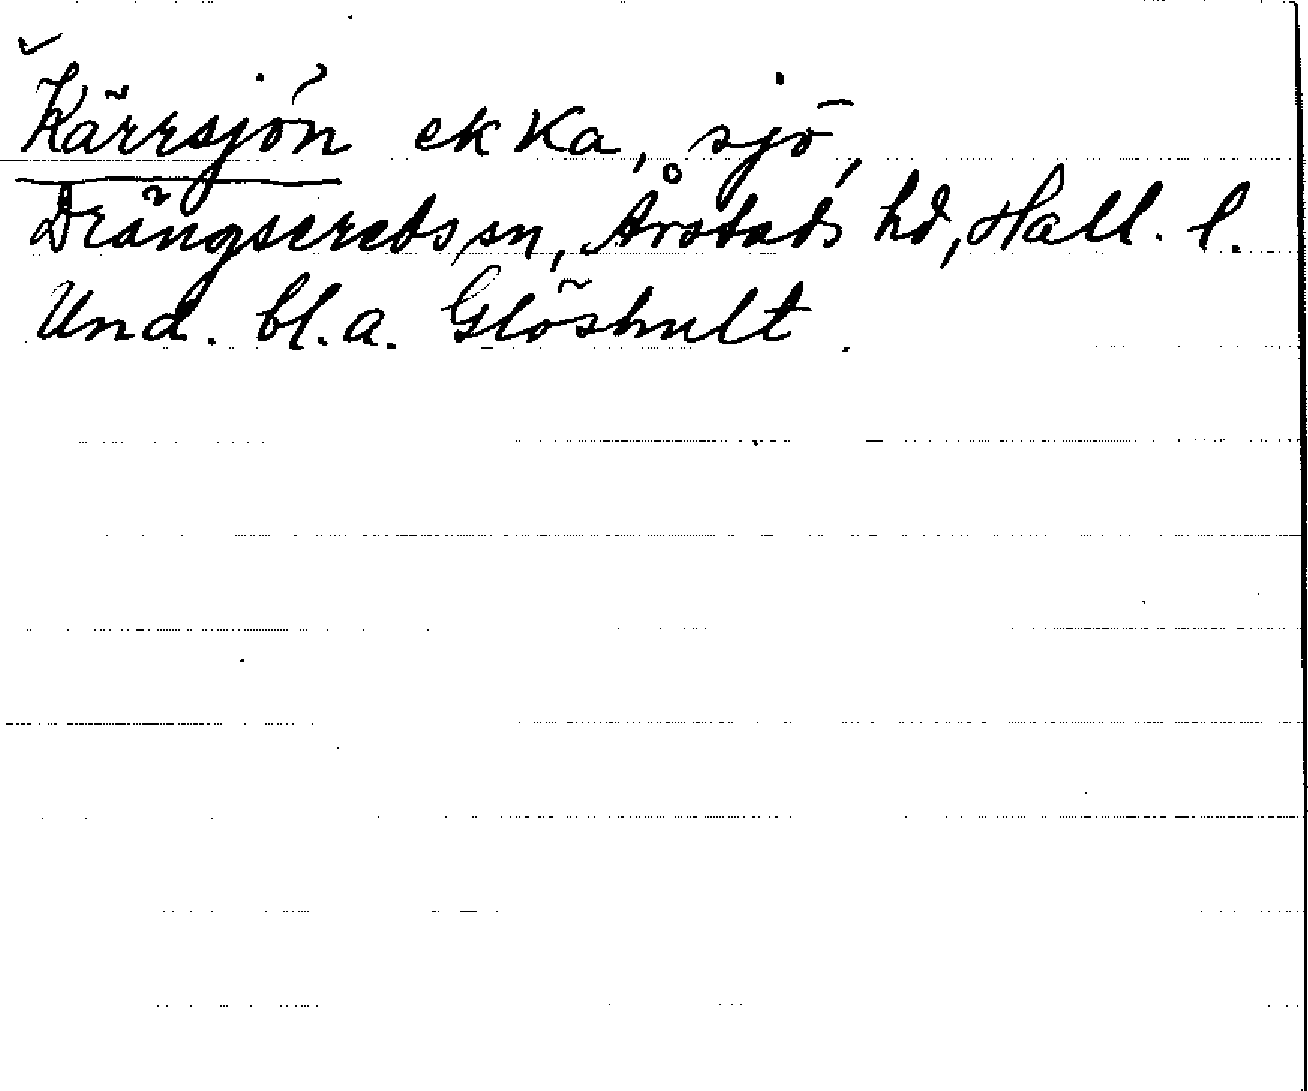 Kärrsjön ek Ka, sjö,
Drängsereds sn, Årstads hd, Hall. l.
Und. bl.a. Glöshult